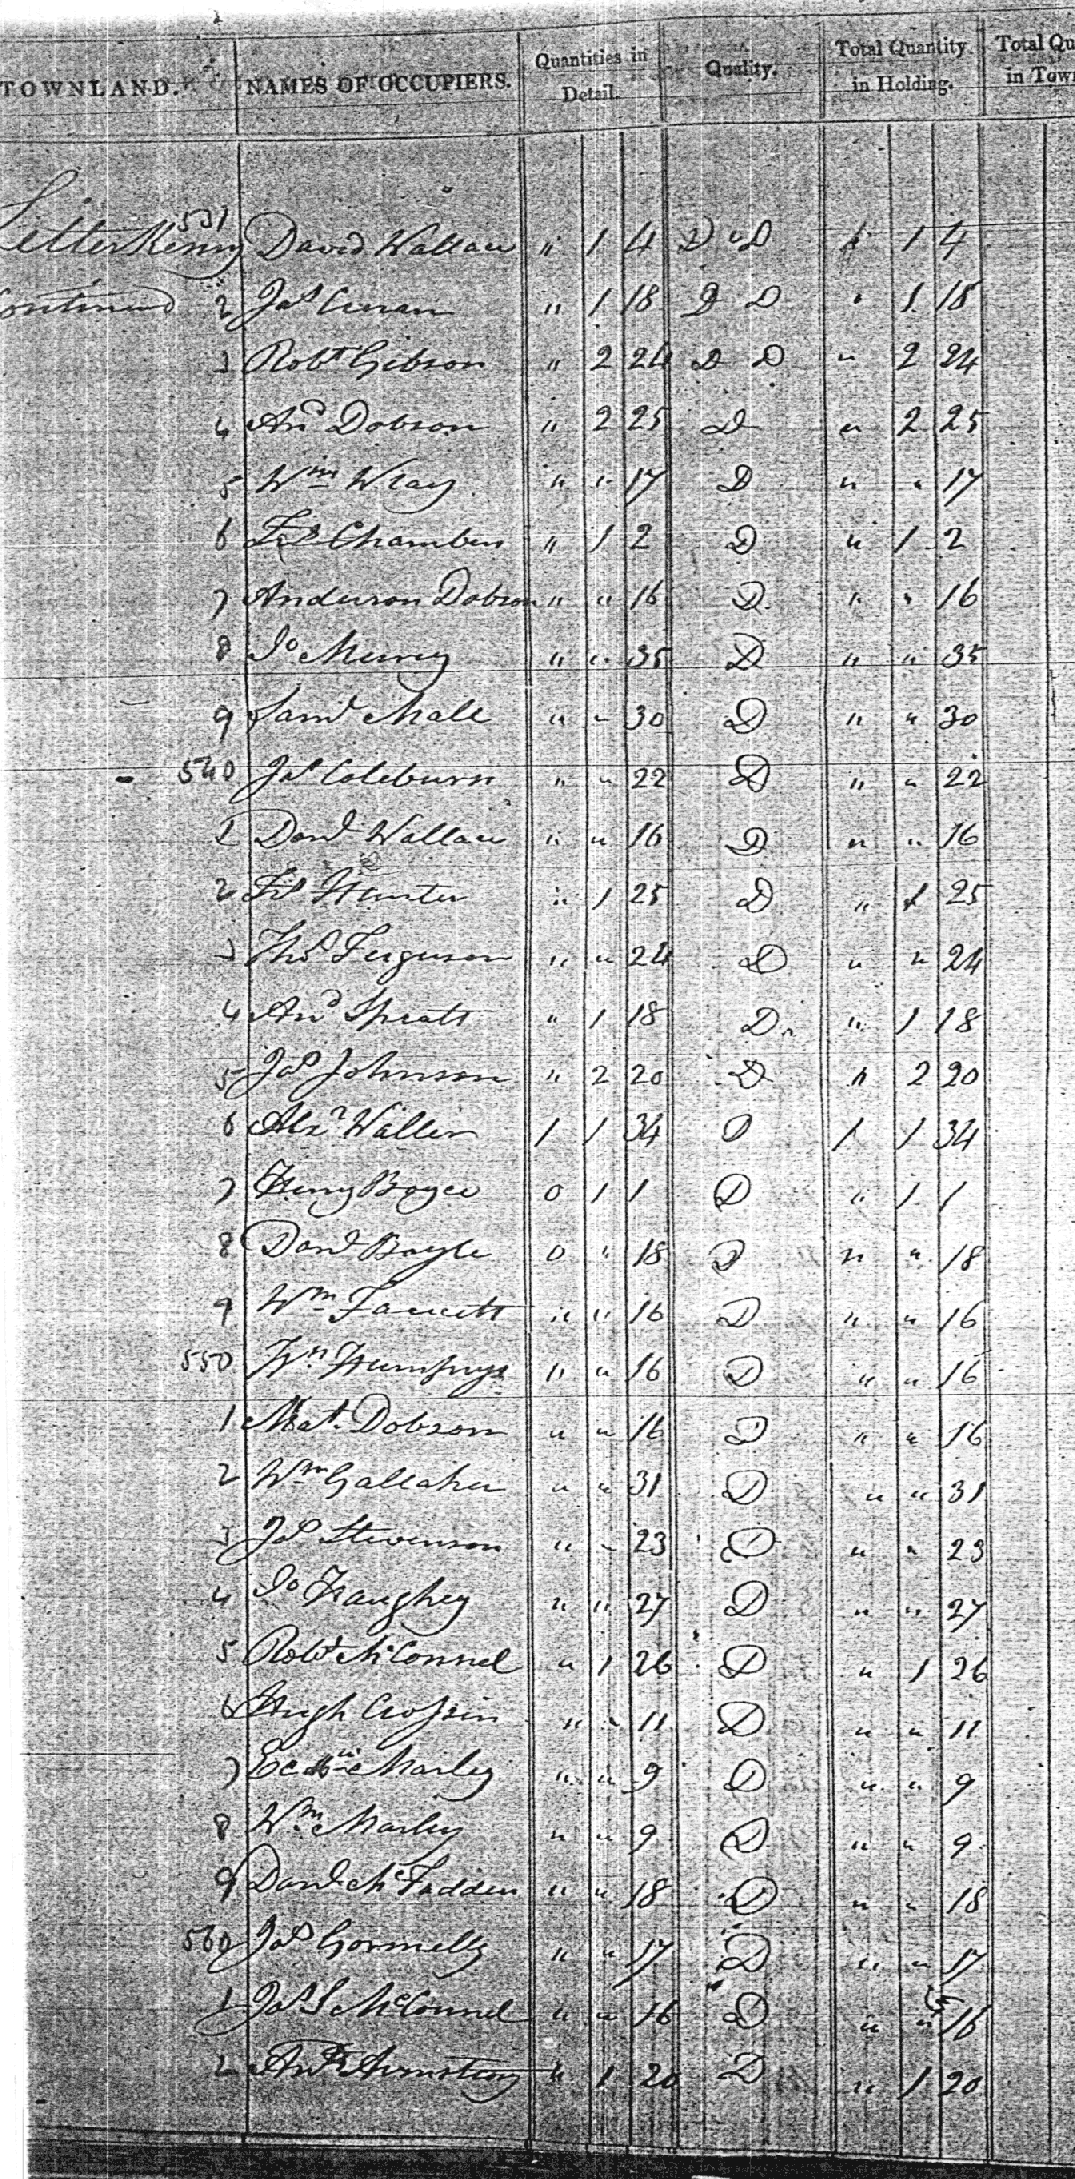 TOWNLAND. NAMES OF OCCUPIERS. Quantities in Detail. Quality. Total Quantity in Holding. Total Qu in Town
Letterkenny 531 David Wallace " 1 4 D " D " 1 4
Continued 2 Jas Curran " 1 18 D D " 1 18
3 Robt Gibson " 2 24 D D " 2 24
4 And Dobson " 2 25 D " 2 25
5 Wm Wray " " 17 D " " 17
6 Frs Chambers " 1 2 D " 1 2
7 Anderson Dobson " " 16 D " " 16
8 Jo Murray " " 35 D " " 35
9 Saml Mall " " 30 D " " 30
540 Jas Coleburn " " 22 D " " 22
1 Danl Wallace " " 16 D " " 16
2 Frs Hunter " 1 25 D " 1 25
3 Thos Ferguson " " 24 D " " 24
4 And Spratt " 1 18 D " 1 18
5 Jas Johnson " 2 20 D " 2 20
6 Alexr Waller 1 1 34 D 1 1 34
7 Henry Boyce 0 1 1 D " 1 1
8 Danl Boyle 0 " 18 D " " 18
9 Wm Fawcett " " 16 D " " 16
550 Wm Humphrys " " 16 D " " 16
1 Mat. Dobson " " 16 D " " 16
2 Wm Gallaher " " 31 D " " 31
3 Jas Stevenson " " 23 D " " 23
4 Jo Haughey " " 27 D " " 27
5 Robt McConnel " 1 26 D " 1 26
6 Hugh Crossin " " 11 D " " 11
7 Marley " " 9 D " " 9
8 Wm Marley " " 9 D " " 9
9 Danl McFadden " " 18 D " " 18
560 Jas Gormelly " " 17 D " " 17
1 Jas S McConnel " " 16 D " " 16
2 Andw Armstrong " 1 20 D " 1 20